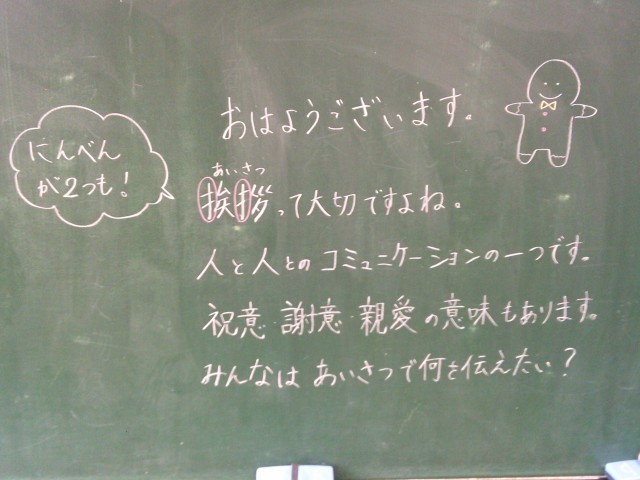 おはようございます。
にんべん
が2つも!
あいさつ
挨拶って大切ですよね。
人と人とのコミュニケーションの一つです。
祝意・謝意・親愛の意味もあります。
みんなは あいさつで何を伝えたい?